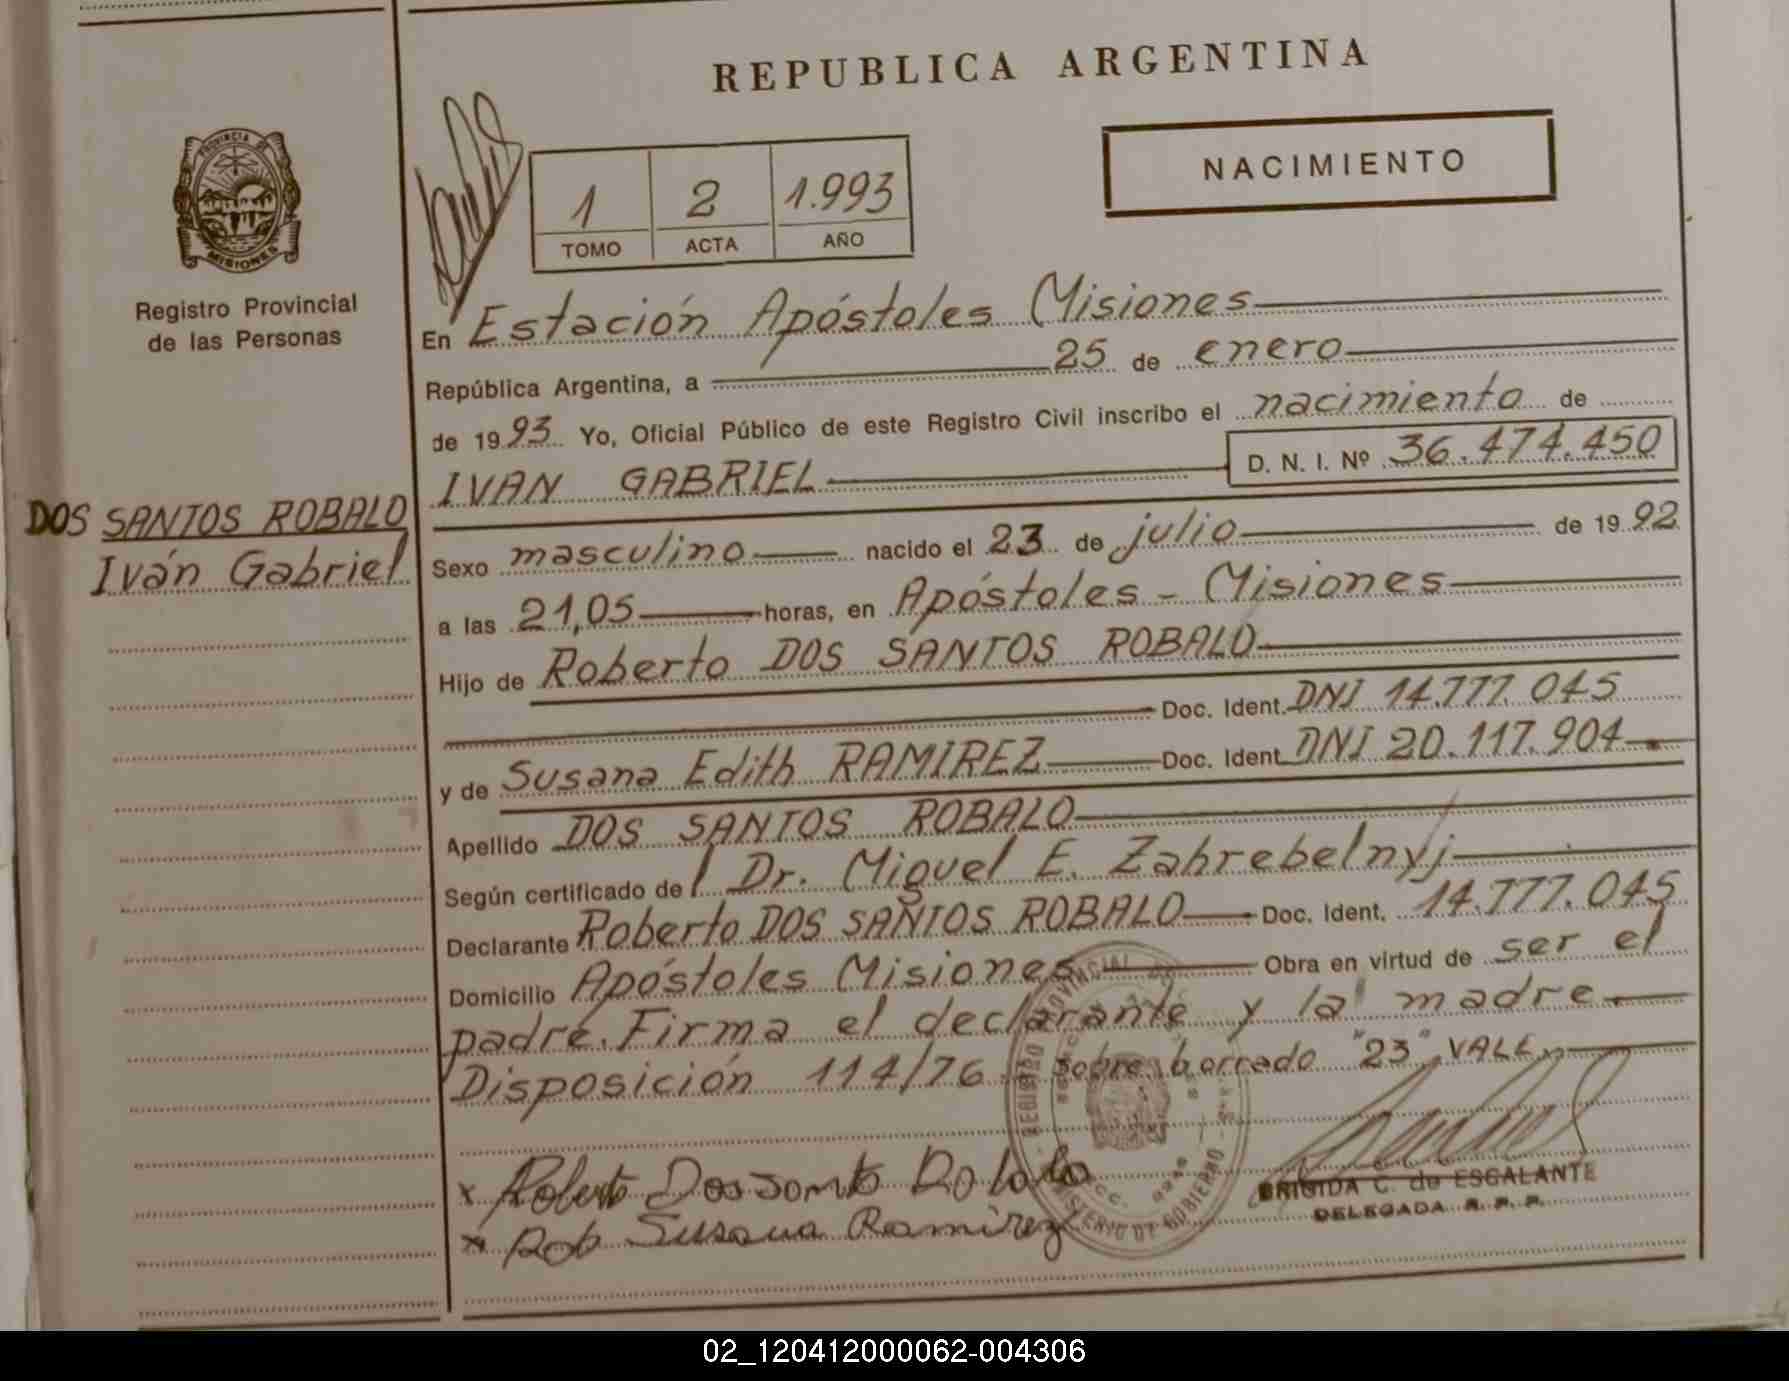 REPUBLICA ARGENTINA
NACIMIENTO
1 2 1.993
TOMO ACTA AÑO
PROVINCIA DE
MISIONES
Registro Provincial
de las Personas
DOS SANTOS ROBALO
Iván Gabriel
En Estación Apóstoles Misiones
República Argentina, a 25 de enero
de 1993 Yo, Oficial Público de este Registro Civil inscribo el nacimiento de
IVAN GABRIEL D. N. I. Nº 36.474.450
Sexo masculino nacido el 23 de julio de 1992
a las 21,05 horas, en Apóstoles - Misiones
Hijo de Roberto DOS SANTOS ROBALO
Doc. Ident. DNI 14.777.045
y de Susana Edith RAMIREZ Doc. Ident DNI 20.117.904
Apellido DOS SANTOS ROBALO
Según certificado de Dr. Miguel E. Zahrebelnyj
Declarante Roberto DOS SANTOS ROBALO Doc. Ident. 14.777.045
Domicilio Apóstoles Misiones Obra en virtud de ser el
padre. Firma el declarante y la madre
Disposición 114/76 sobre borrado "23" VALE
x Roberto Dos Santos Robalo
x Rob Susana Ramirez
BRIGIDA C. de ESCALANTE
DELEGADA R. P. P.
02_120412000062-004306